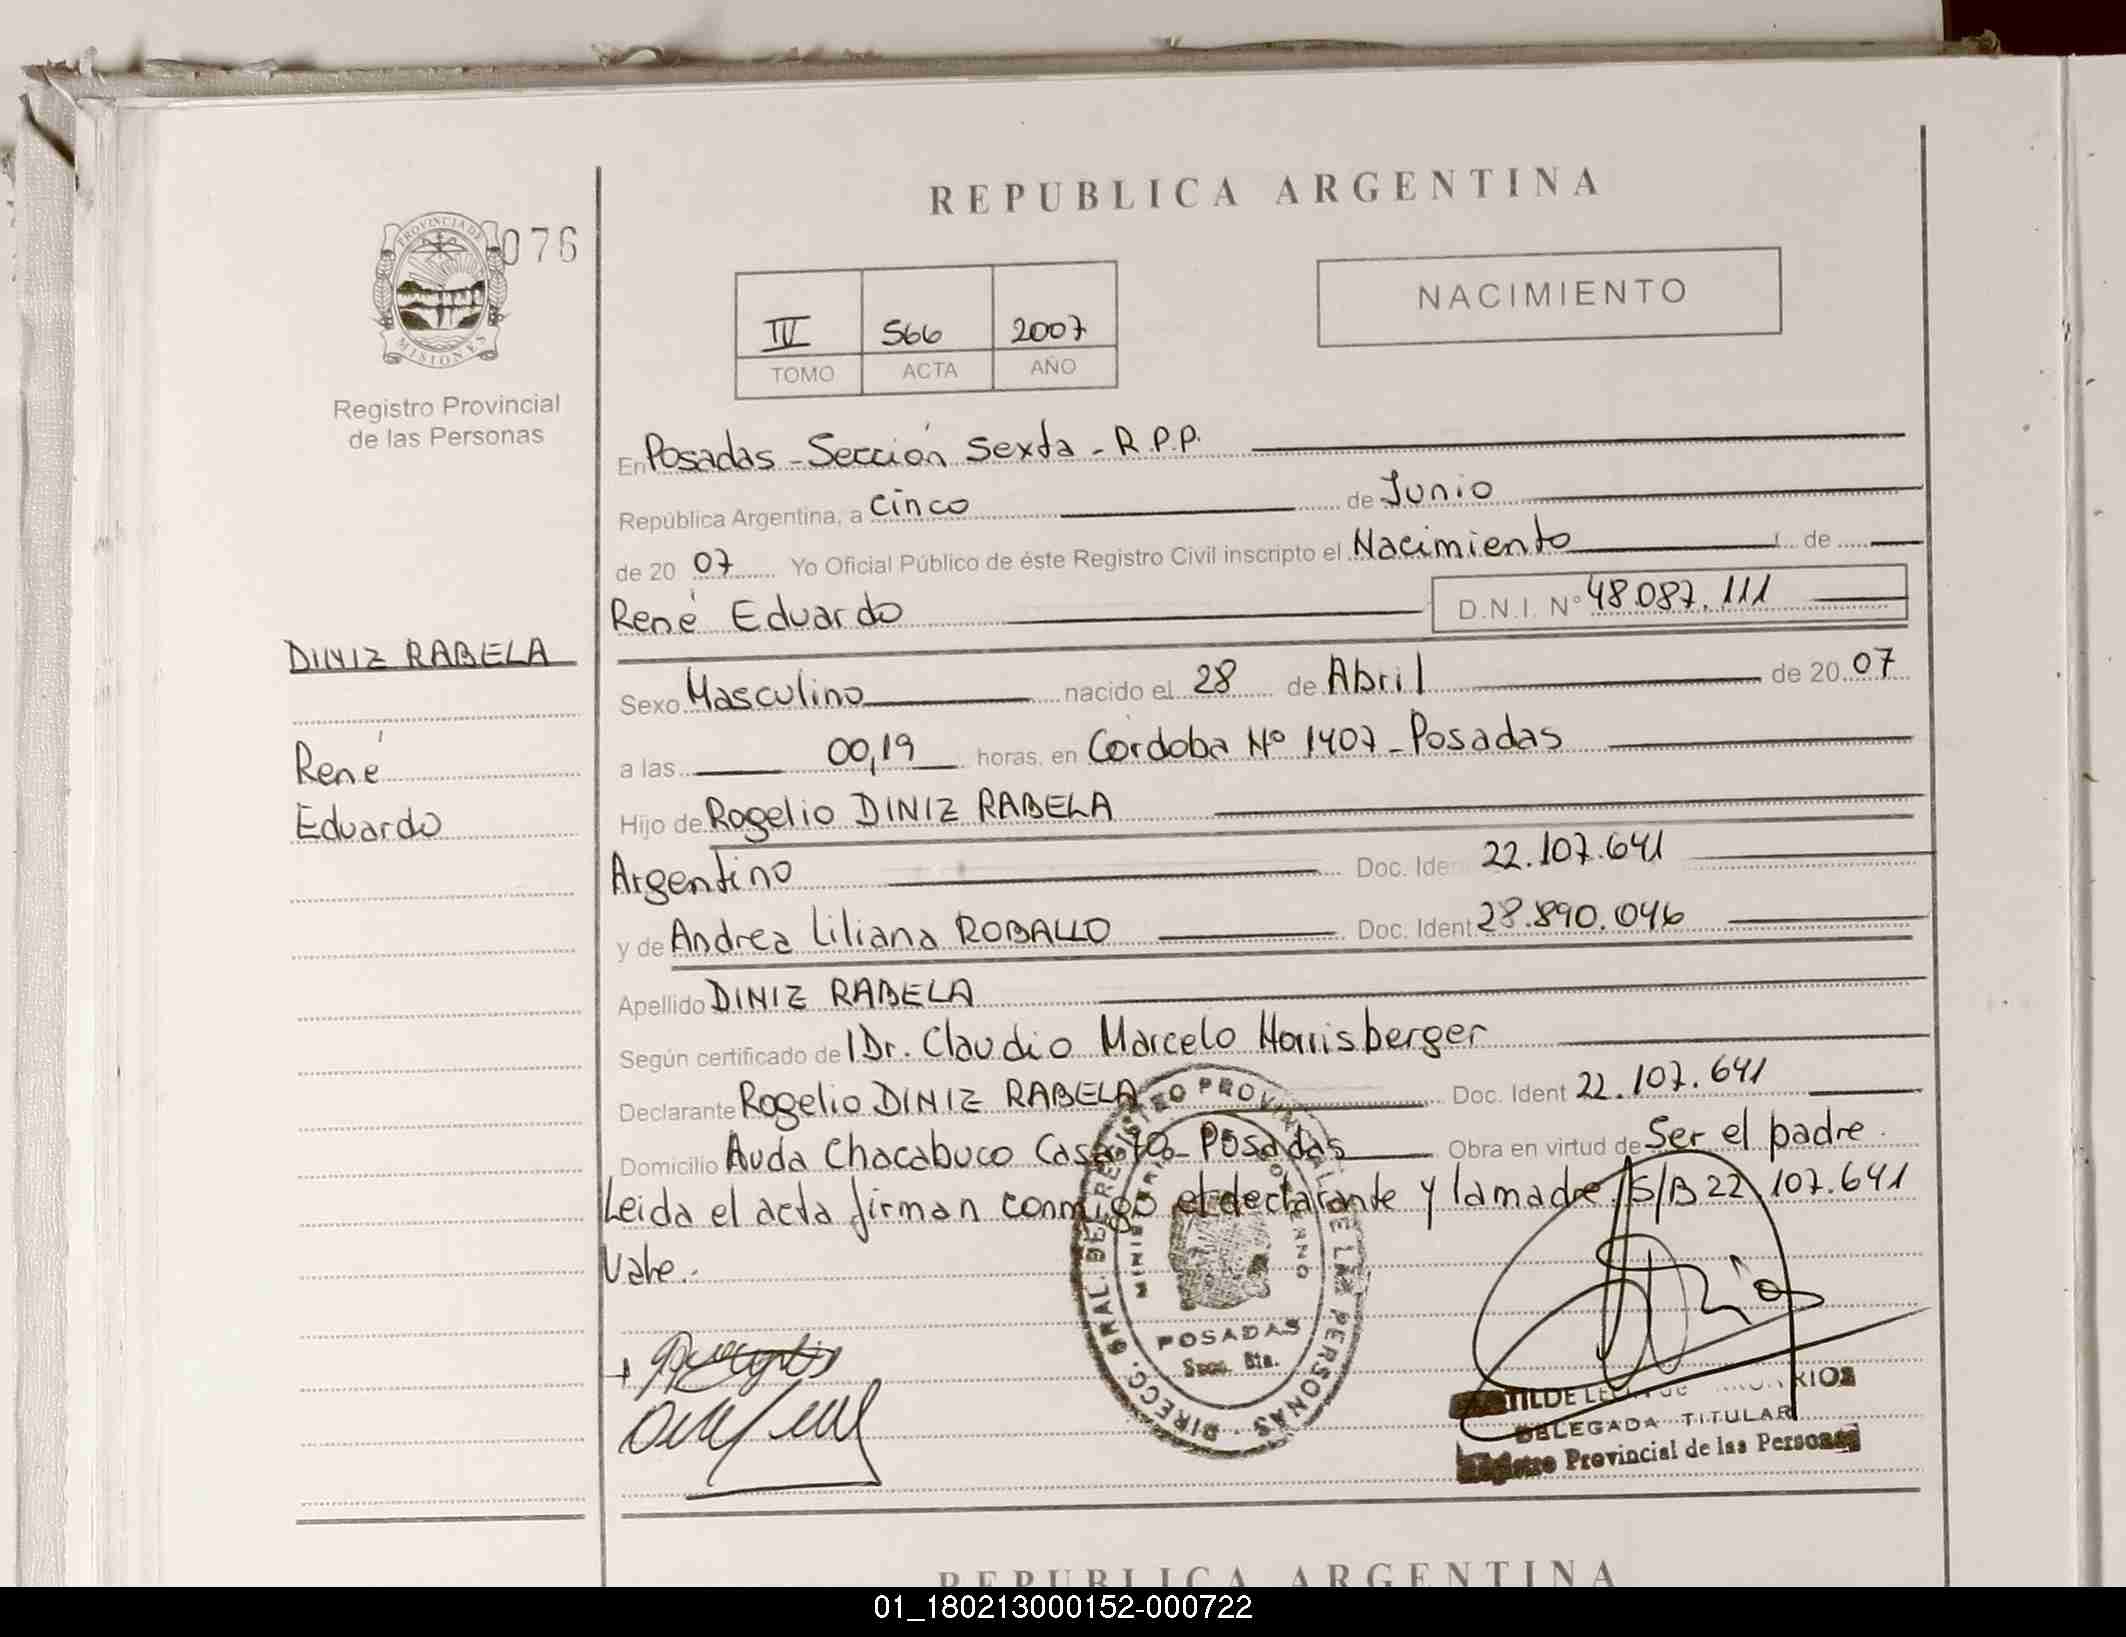 REPUBLICA ARGENTINA
PROVINCIA DE MISIONES
076
Registro Provincial
de las Personas
NACIMIENTO
IV 566 2007
TOMO ACTA AÑO
En Posadas - Sección Sexta - R.P.P.
República Argentina, a cinco de Junio
de 20 07 Yo Oficial Público de éste Registro Civil inscripto el Nacimiento de
René Eduardo D.N.I. Nº 48.087.111
DINIZ RABELA
René
Eduardo
Sexo Masculino nacido el 28 de Abril de 20 07
a las 00,19 horas, en Córdoba Nº 1407 - Posadas
Hijo de Rogelio DINIZ RABELA
Argentino Doc. Iden 22.107.641
y de Andrea Liliana ROBALLO Doc. Ident. 28.890.046
Apellido DINIZ RABELA
Según certificado de Dr. Claudio Marcelo Horrisberger
Declarante Rogelio DINIZ RABELA Doc. Ident 22.107.641
Domicilio Avda Chacabuco Casa Posadas Obra en virtud de Ser el padre.
Leida el acta firman conmigo el declarante y la madre. S/B 22.107.641
Vale.-
DIRECC. GRAL. DEL REGISTRO PROVINCIAL DE LAS PERSONAS
MINISTERIO GOBIERNO
POSADAS
Secc. 6ta.
DELEGADA TITULAR
Registro Provincial de las Personas
REPUBLICA ARGENTINA
01_180213000152-000722